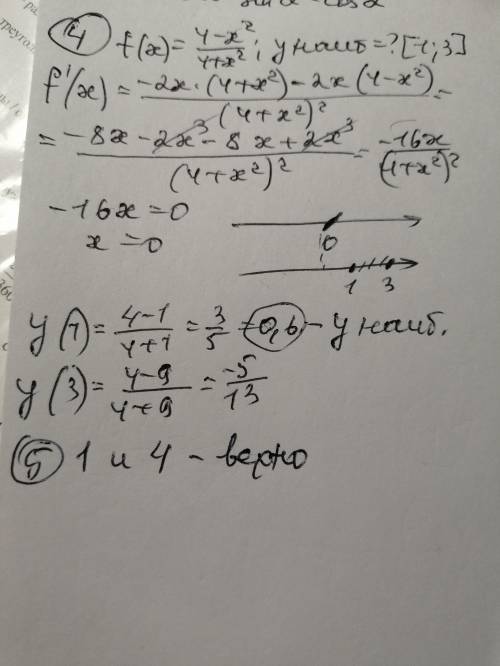 sin x - cos x
④ f(x) = (4-x²)/(4+x²); y наиб = ? [-1; 3]
f'(x) = (-2x·(4+x²) - 2x(4-x²))/(4+x²)² =
= (-8x - 2x³ - 8x + 2x³)/(4+x²)² = -16x/(4+x²)²
-16x = 0
x = 0
0
1 3
y(1) = (4-1)/(4+1) = 3/5 = 0,6 - y наиб.
y(3) = (4-9)/(4+9) = -5/13
⑤ 1 и 4 - верно